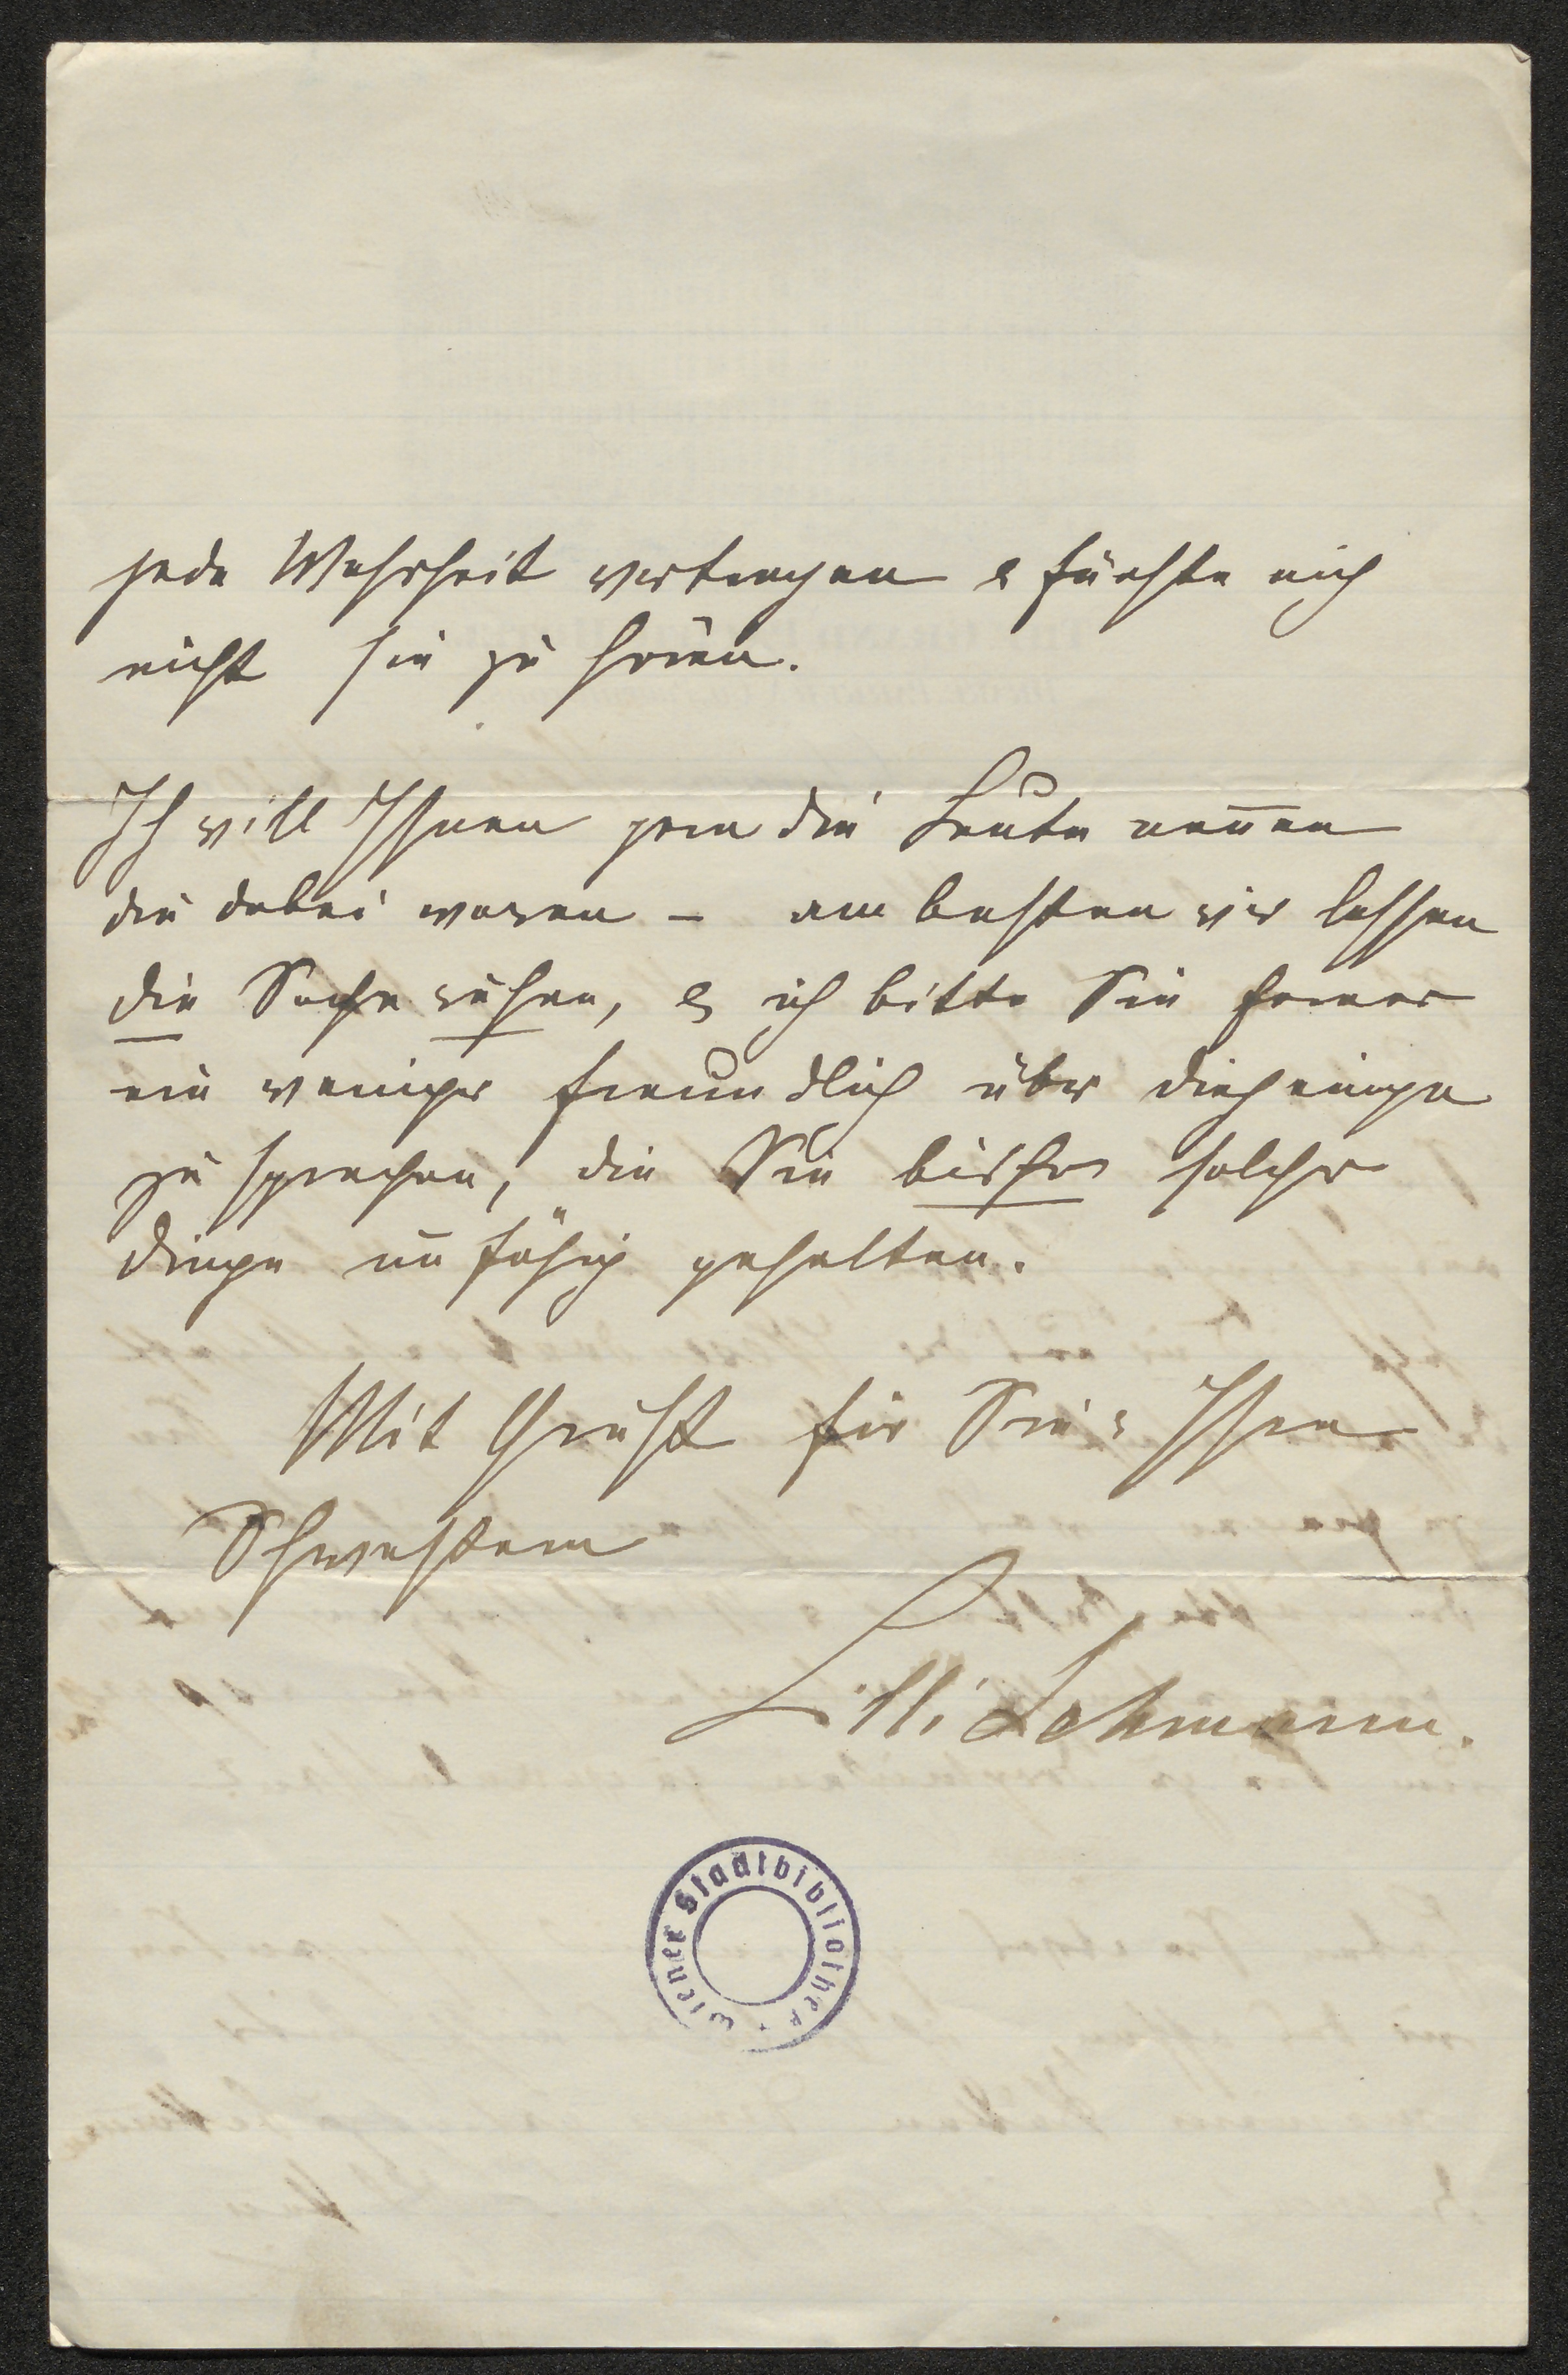 jede Wahrheit vertragen & fürchte mich
nicht sie zu hören.
Ich will Ihnen gern die Leute neñen
die dabei waren – am besten wir lassen
die Sache ruhen, & ich bitte Sie ferner
ein weniger freundlich über diejenige
zu sprechen, die Sie bisher solcher
Dinge unfähig gehalten.
Mit Gruß für Sie & Ihre
Schwestern
Lilli Lehmann.
Wiener Stadtbibliothek